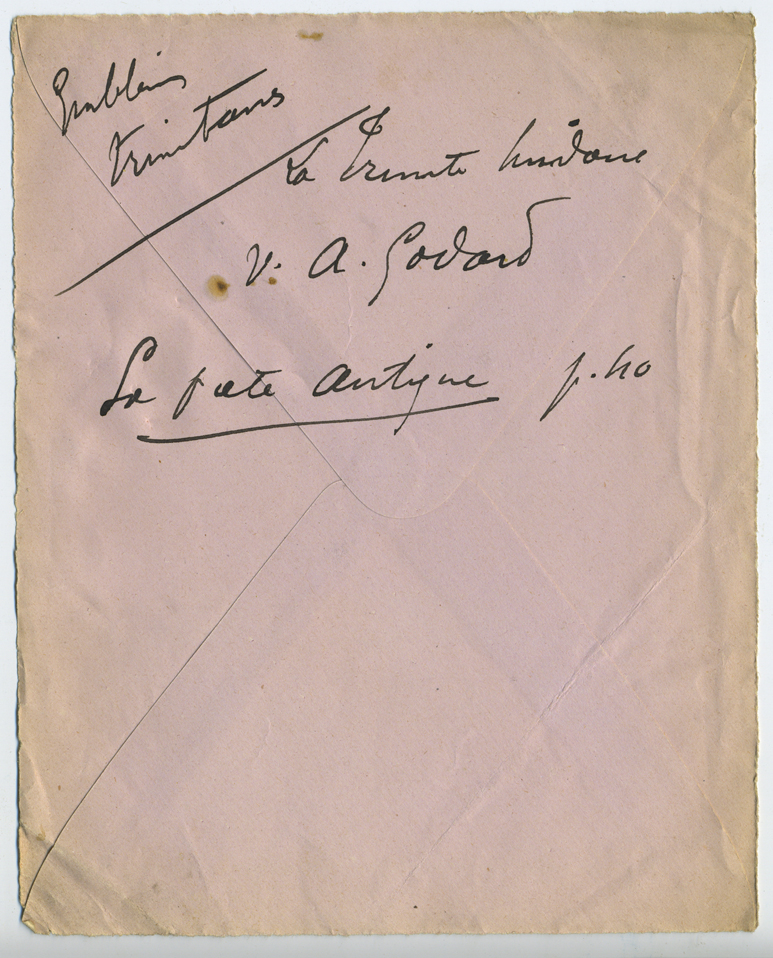 Emblèmes
trinitaires
La Trinité hindoue
V. A. Godard
La piété antique p. 40